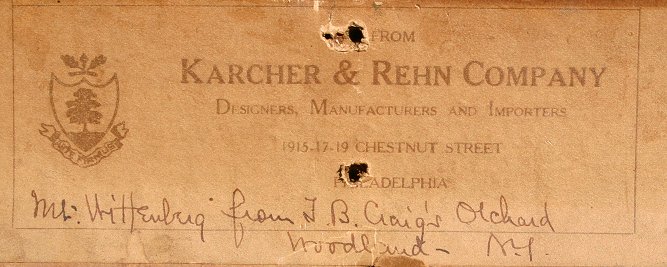 FROM
KARCHER & REHN COMPANY
DESIGNERS, MANUFACTURERS AND IMPORTERS
1915-17-19 CHESTNUT STREET
PHILADELPHIA
Mt. Wittenberg from T. B. Craig's Orchard
Woodland - N.Y.